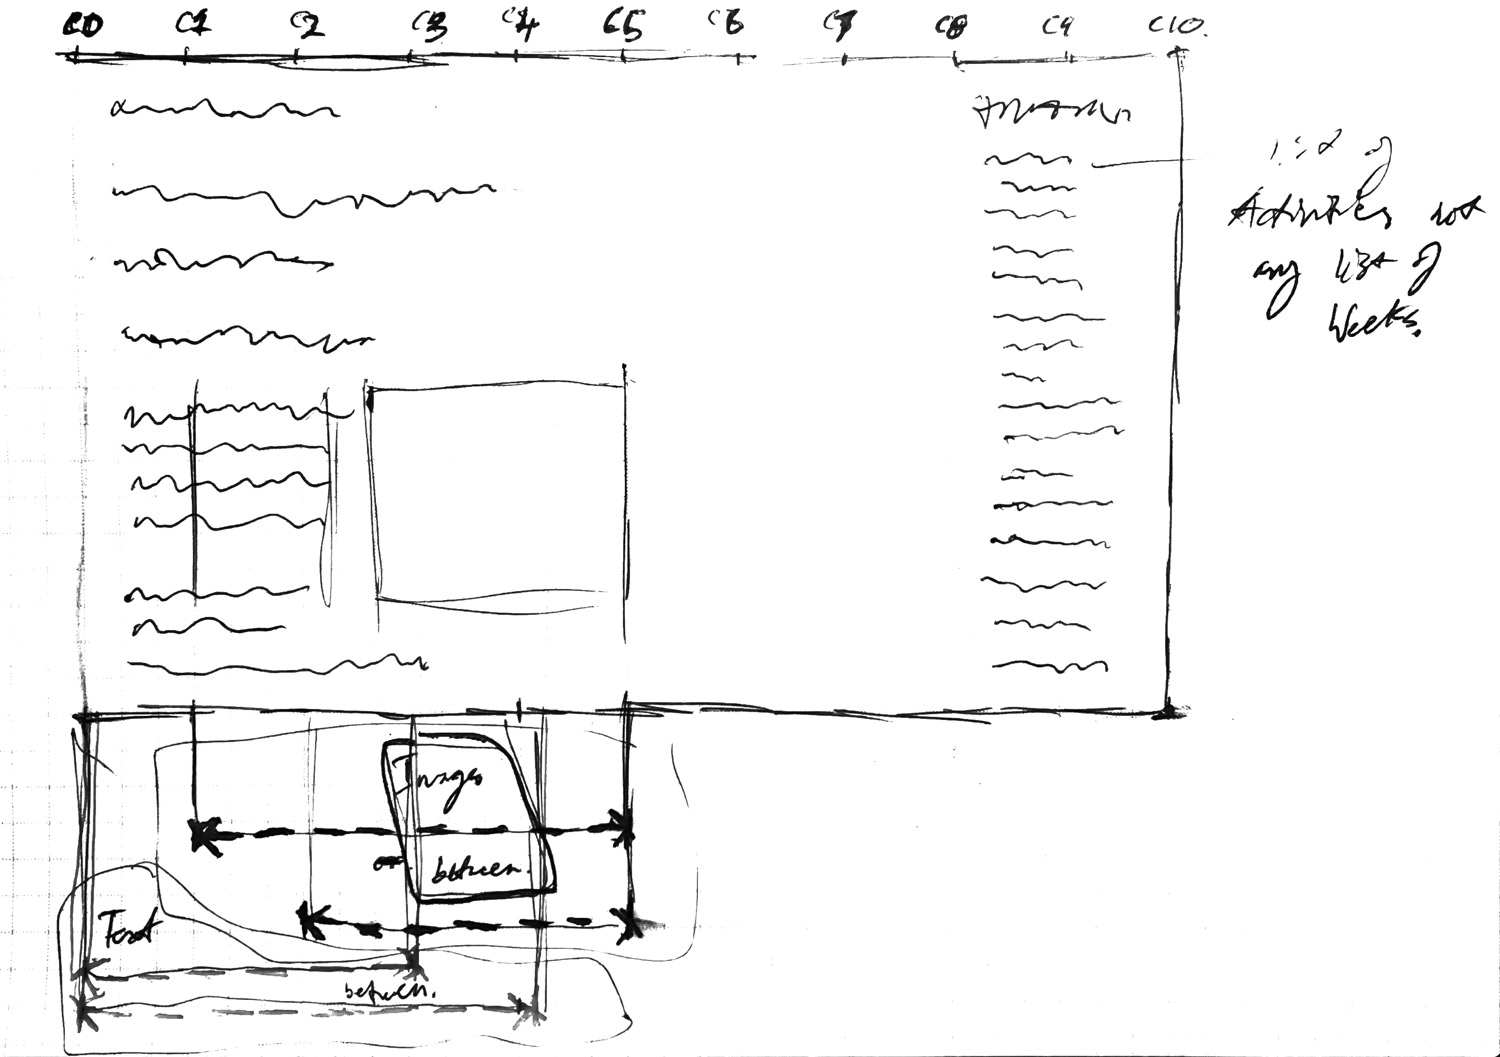 C0 C1 C2 C3 C4 C5 C6 C7 C8 C9 C10.
list of
Activities not
any list of
Weeks.
Images
or between.
Text
between.